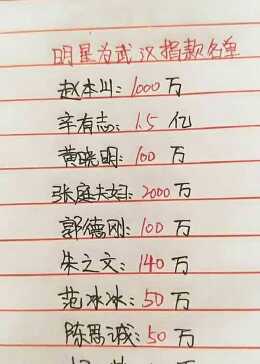 明星为武汉捐款名单
赵本山：1000万
辛有志：1.5亿
黄晓明：100万
张庭夫妇：2000万
郭德刚：100万
朱之文：140万
范冰冰：50万
陈思诚：50万